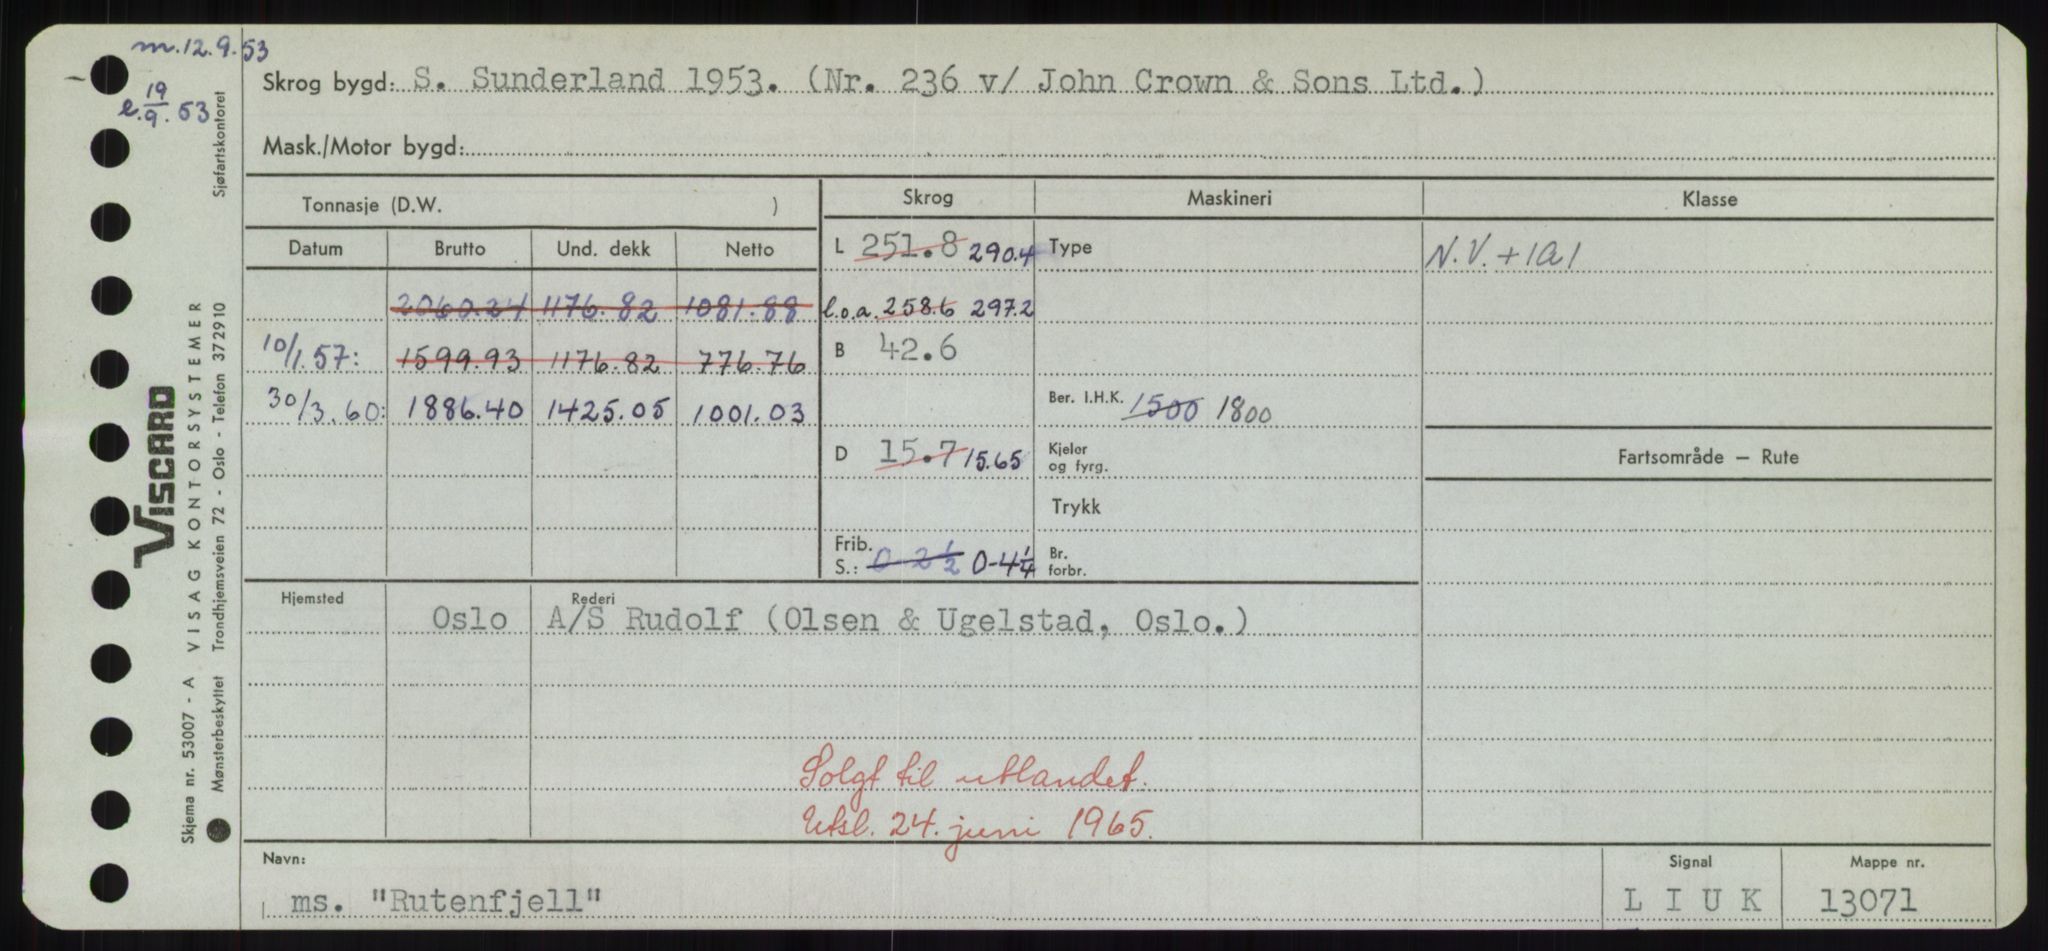 m.12.9.53
e. 19/9. 53
Skrog bygd: S. Sunderland 1953. (Nr. 236 v/ John Crown & Sons Ltd.)
Mask./Motor bygd:
Tonnasje (D.W. )
Skrog
Maskineri
Klasse
Datum Brutto Und. dekk Netto
L 251.8 290.4
Type
N.V. + 1A1
2060.24 1176.82 1081.88
l.o.a. 258.6 297.2
10/1.57: 1599.93 1176.82 776.76
B 42.6
30/3.60: 1886.40 1425.05 1001.03
Ber. I.H.K. 1500 1800
D 15.7 15.65
Kjeler
og fyrg.
Fartsområde – Rute
Trykk
Frib.
S.: 0-2 1/2 0-4 1/4
Br.
forbr.
Hjemsted
Rederi
Oslo A/S Rudolf (Olsen & Ugelstad, Oslo.)
Solgt til utlandet.
Utsl. 24. juni 1965.
Navn:
Signal
Mappe nr.
ms. "Rutenfjell"
L I U K
13071
VISCARD
Skjema nr. 53007 - A VISAG KONTORSYSTEMER
Mønsterbeskyttet Trondhjemsveien 72 - Oslo - Telefon 372910 Sjøfartskontoret